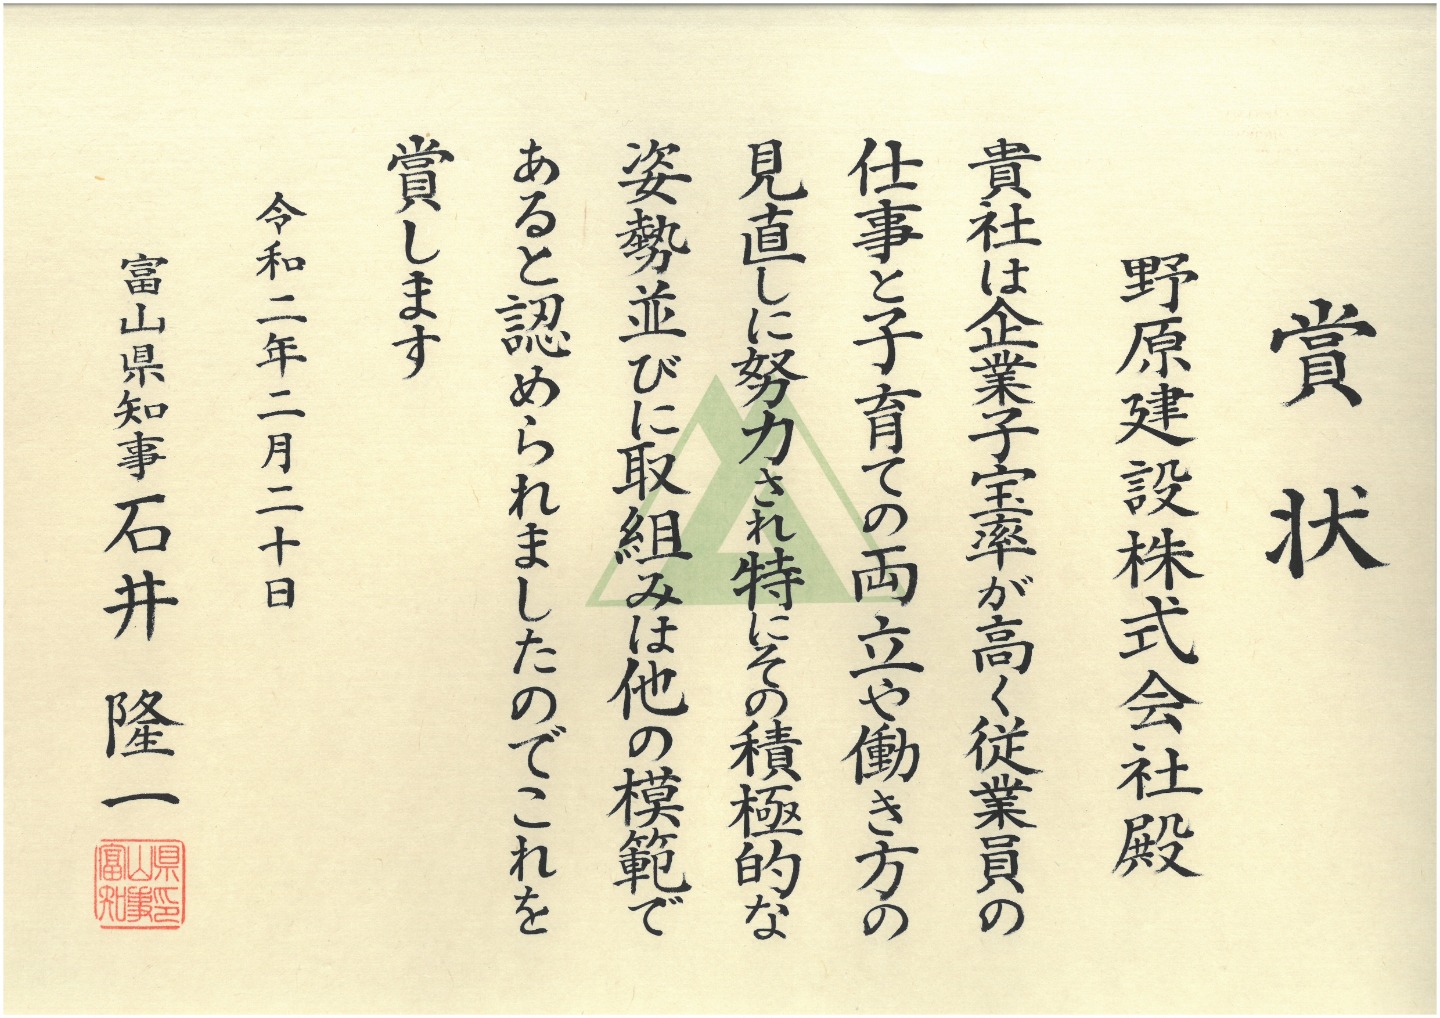 賞状
野原建設株式会社殿
貴社は企業子宝率が高く従業員の
仕事と子育ての両立や働き方の
見直しに努力され特にその積極的な
姿勢並びに取組みは他の模範で
あると認められましたのでこれを
賞します
令和二年二月二十日
富山県知事 石井 隆一
富山県知事印